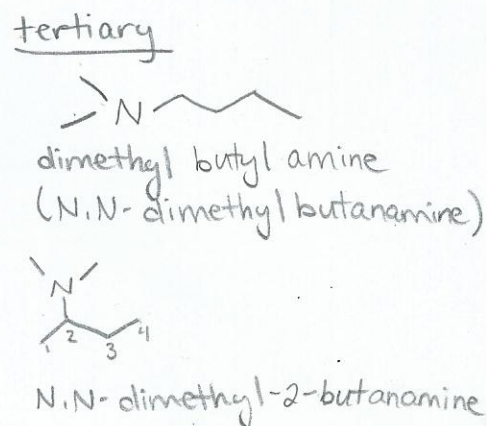 tertiary
N
dimethyl butyl amine
(N,N-dimethyl butanamine)
N
1 2 3 4
N,N-dimethyl-2-butanamine